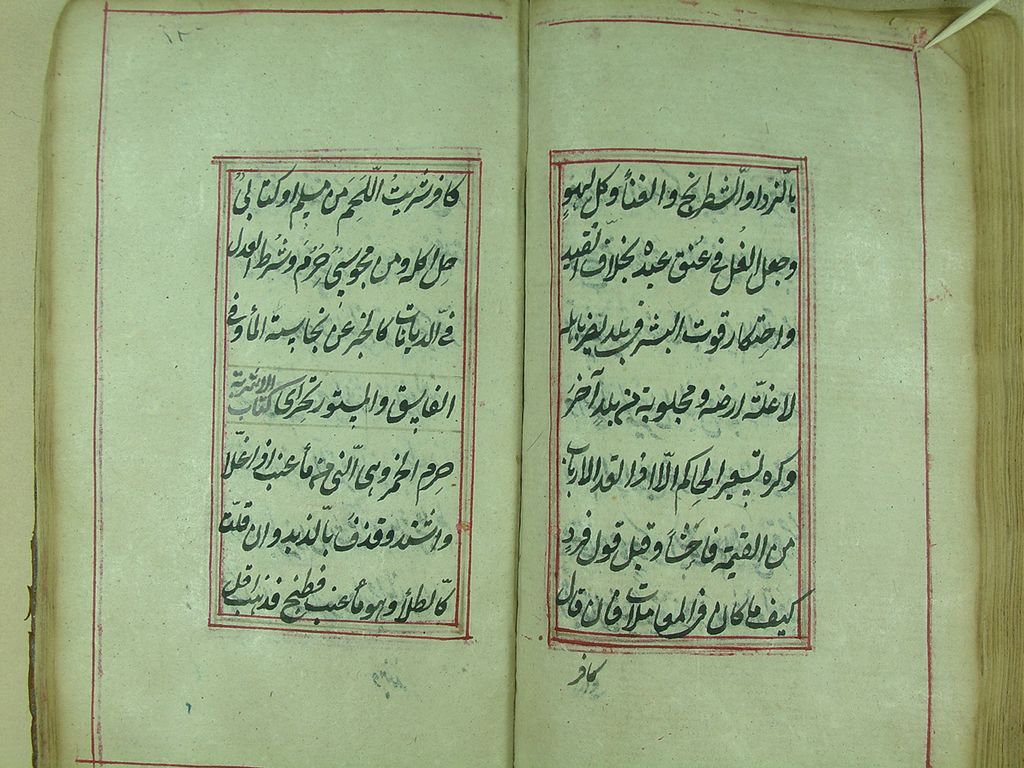 بالنرد او الشطرنج والغناء وكل لهو
وجعل الغل فى عنق عبده بخلاف التقييد
واحتكار قوت البشر فى بلد يضر باهله
لا غلة ارضه ومجلوبه من بلد آخر
وكره تسعير الحاكم الّا اذا تعد الارباب
من القيمة فاحشا وقبل قول فرد
كيف ما كان فى المعاملات فان قال
كافر
كافر شريت اللّحم من مسلم او كتابىّ
حل اكله ومن مجوسىّ حرم وشرط العدل
فى الديانات كالخبر عن نجاسة الماء وفى
الفاسق والمستور تحرّى كتاب الاشربة
حرم الخمر وهى النّى من ماء عنب اذا غلا
واشتد وقذف بالزبد وان قلّت
كالطلاء وهو ماء عنب فطبخ فذهب اقل
١٢